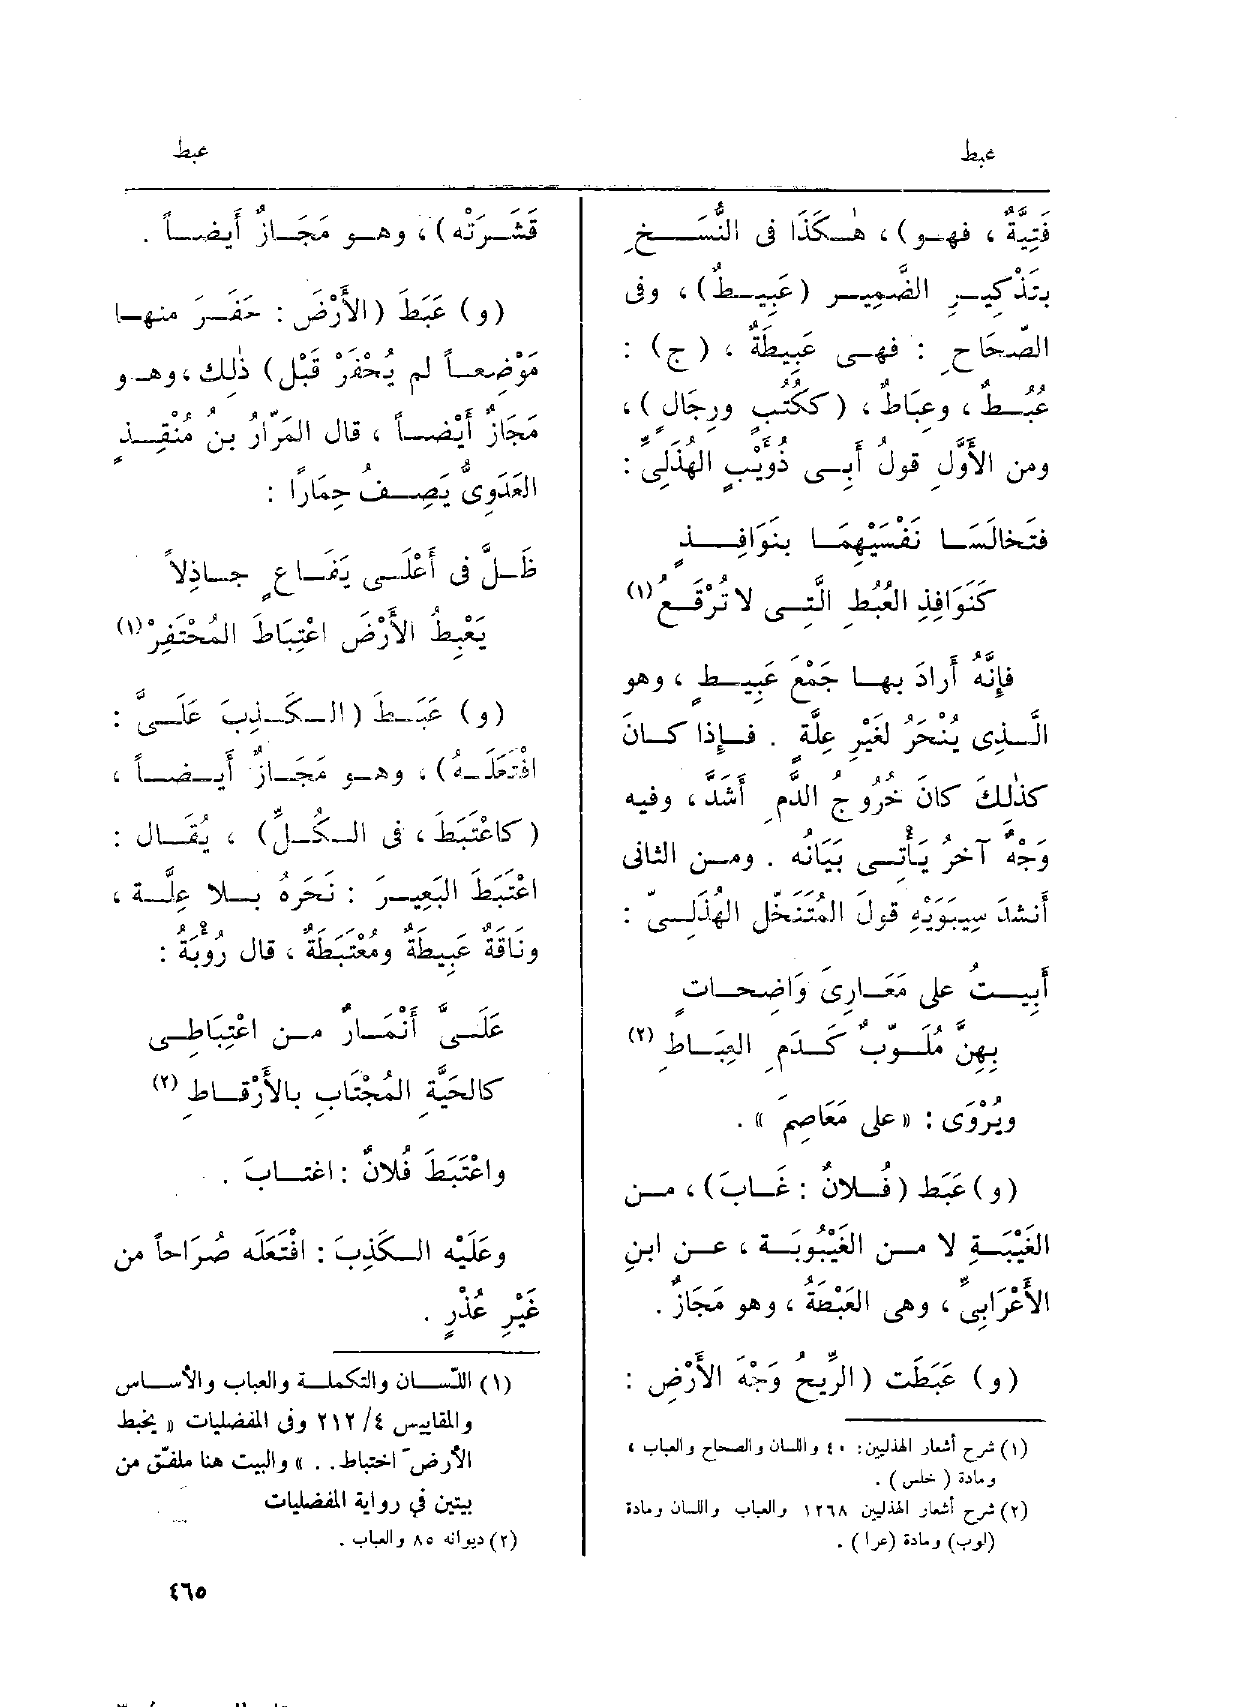 عبط
عبط
فَتِيَّةٌ ، فهـو) ، هٰـكَذَا فى النُّسَـخِ
بتَذْكِيـرِ الضَّمِيـر (عَبِيـطٌ) ، وفى
الصّحَاحِ : فهـى عَبِيطَةٌ ، (ج) :
عُبُـطٌ ، وعِبَاطٌ ، (ككُتُبٍ ورِجَالٍ) ،
ومن الأَوَّلِ قولُ أَبِـى ذُؤَيْبٍ الهُذَلِىِّ :
فتَخالَسَـا نَفْسَيْهِمَـا بنَوَافِـذٍ
كَنَوَافِذِ العُبُطِ الَّتِـى لا تُرْقَـعُ (١)
فإِنَّهُ أَرادَ بهـا جَمْعَ عَبِيـطٍ ، وهو
الَّـذِى يُنْحَرُ لغَيْرِ عِلَّةٍ . فـإِذا كـانَ
كذٰلِكَ كانَ خُرُوجُ الدَّمِ أَشَدَّ ، وفيه
وَجْهٌ آخرُ يَأْتِـى بَيَانُه . ومـن الثانى
أَنشدَ سِيبَوَيْهِ قولَ المُتَنَخِّل الهُذَلِـىّ :
أَبِيـتُ على مَعَـارِىَ وَاضِحـاتٍ
بِهِنَّ مُلَـوَّبٌ كَـدَمِ العِبَـاطِ (٢)
ويُرْوَى : « على مَعَاصِمَ » .
(و) عَبَط (فُـلانٌ : غَـابَ) ، مـن
الغَيْبَـةِ لا مـن الغَيْبُوبَـة ، عـن ابنِ
الأَعْرَابِىِّ ، وهى العَبْطَةُ ، وهو مَجَازٌ .
(و) عَبَطَت (الرِّيحُ وَجْهَ الأَرْضِ :
(١) شرح أشعار الهذليين : ٤٠ واللسان والصحاح والعباب ،
ومادة (خلس) .
(٢) شرح أشعار الهذليين ١٢٦٨ والعباب واللسان ومادة
(لوب) ومادة (عرا) .
قَشَـرَتْه) ، وهـو مَجَـازٌ أَيضـاً .
(و) عَبَطَ (الأَرْضَ : حَفَـرَ منهـا
مَوْضِعـاً لم يُحْفَرْ قَبْل) ذٰلك ، وهـو
مَجَازٌ أَيْضـاً ، قال المَرّارُ بن مُنْقِـذٍ
العَدَوِىُّ يَصِـفُ حِمَارًا :
ظَـلَّ فى أَعْلَـى يَفَـاعٍ جـاذِلاً
يَعْبِطُ الأَرْضَ اعْتِبَاطَ المُحْتَفِرْ (١)
(و) عَبَـطَ (الـكَـذِبَ عَلَـىَّ :
افْتَعَلَـهُ) ، وهـو مَجَـازٌ أَيـضـاً ،
(كاعْتَبَطَ ، فى الـكُـلِّ) ، يُقَـال :
اعْتَبَطَ البَعِيـرَ : نَحَرَهُ بـلا عِلَّـة ،
وناقَةٌ عَبِيطَةٌ ومُعْتَبَطَةٌ ، قال رُؤْبَةُ :
عَلَـىَّ أَنْمَـارٌ مـن اعْتِبَاطِـى
كالحَيَّةِ المُجْتَابِ بـالأَرْقَـاطِ (٢)
واعْتَبَطَ فُلانٌ : اغتـابَ .
وعَلَيْه الـكَذِبَ : افْتَعَلَه صُرَاحاً من
غَيْرِ عُذْرٍ .
(١) اللّسـان والتكملـة والعباب والأسـاس
والمقاييس ٤/ ٢١٢ وفى المفضليات « يخبط
الأرضَ اختباط . . » والبيت هنا ملفّق من
بيتين في رواية المفضليات
(٢) ديوانه ٨٥ والعباب .
٤٦٥